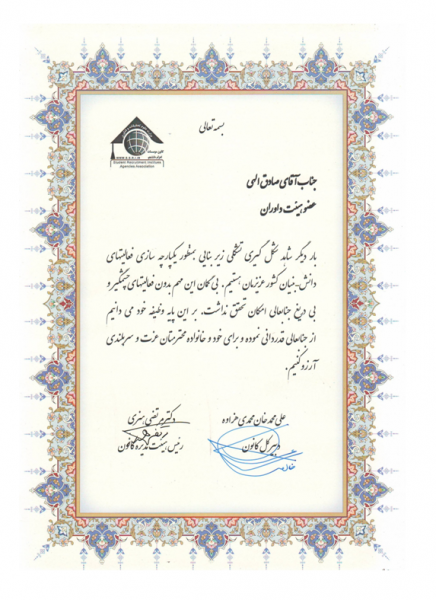 بسمه تعالی
Student Recruitment Institutes
Agencies Association
جناب آقای صادق الهی
عضو هیئت داوران
بار دیگر شاهد شکل گیری تشکلی زیر بنایی بمنظور یکپارچه سازی فعالیتهای
دانش بنیان کشور عزیزمان هستیم. بی گمان این مهم بدون فعالیتهای چشمگیر و
بی دریغ جنابعالی امکان تحقق نداشت. بر این پایه وظیفه خود می دانیم
از جنابعالی قدردانی نموده و برای خود و خانواده محترمتان عزت و سربلندی
آرزو کنیم.
علی محمد خان محمدی هزاوه
دبیر کل کانون
دکتر مرتضی
رئیس هیئت مدیره کانون